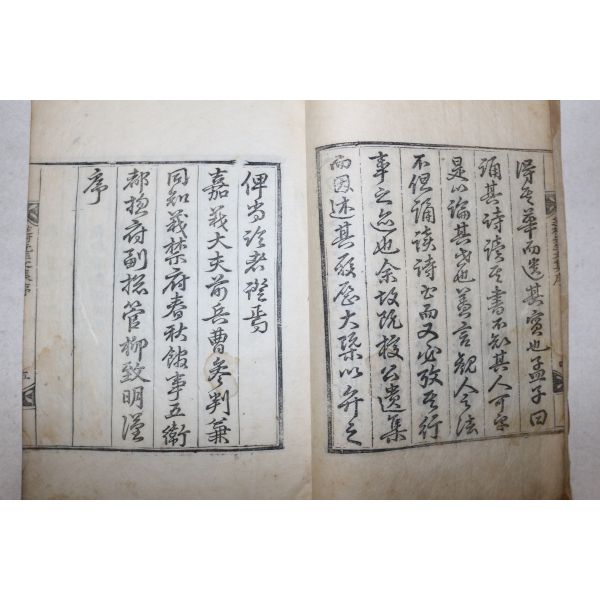 得其華而遺其實也孟子曰
誦其詩讀其書不知其人可乎
是以論其世也蓋言觀人之法
不但誦讀詩書而又必攷其行
事之迹也余故既校公遺集
而因述其履歷大槩以弁之
俾尚論者證焉
嘉義大夫前兵曹參判兼
同知義禁府春秋館事五衛
都摠府副摠管柳致明謹
序
五